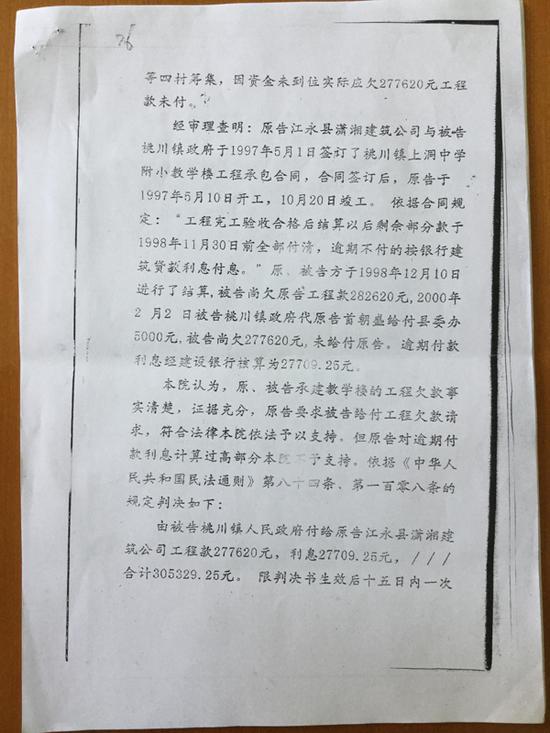 26
等四村筹集，因资金未到位实际应欠277620元工程
款未付。
经审理查明：原告江永县潇湘建筑公司与被告
桃川镇政府于1997年5月1日签订了桃川镇上洞中学
附小教学楼工程承包合同，合同签订后，原告于
1997年5月10日开工，10月20日竣工。依据合同规
定：“工程完工验收合格后结算以后剩余部分款于
1998年11月30日前全部付清，逾期不付的按银行建
筑贷款利息付息。”原、被告方于1998年12月10日
进行了结算,被告尚欠原告工程款282620元,2000年
2月2日被告桃川镇政府代原告首朝盛给付县委办
5000元,被告尚欠277620元,未给付原告。逾期付款
利息经建设银行核算为27709.25元。
本院认为，原、被告承建教学楼的工程欠款事
实清楚，证据充分，原告要求被告给付工程欠款请
求，符合法律本院依法予以支持。但原告对逾期付
款利息计算过高部分本院不予支持。依据《中华人
民共和国民法通则》第八十四条、第一百零八条的
规定判决如下：
由被告桃川镇人民政府付给原告江永县潇湘建
筑公司工程款277620元，利息27709.25元，///
合计305329.25元。限判决书生效后十五日内一次